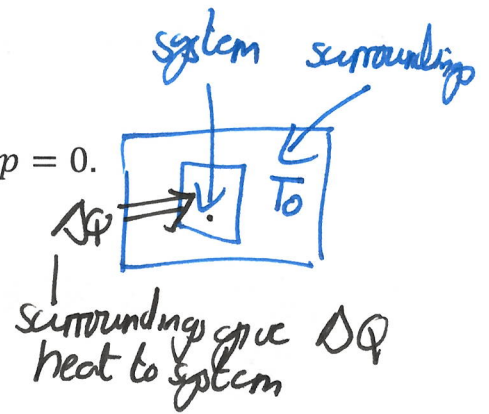 system surroundings
p = 0.
T₀
ΔQ
surroundings give ΔQ
heat to system